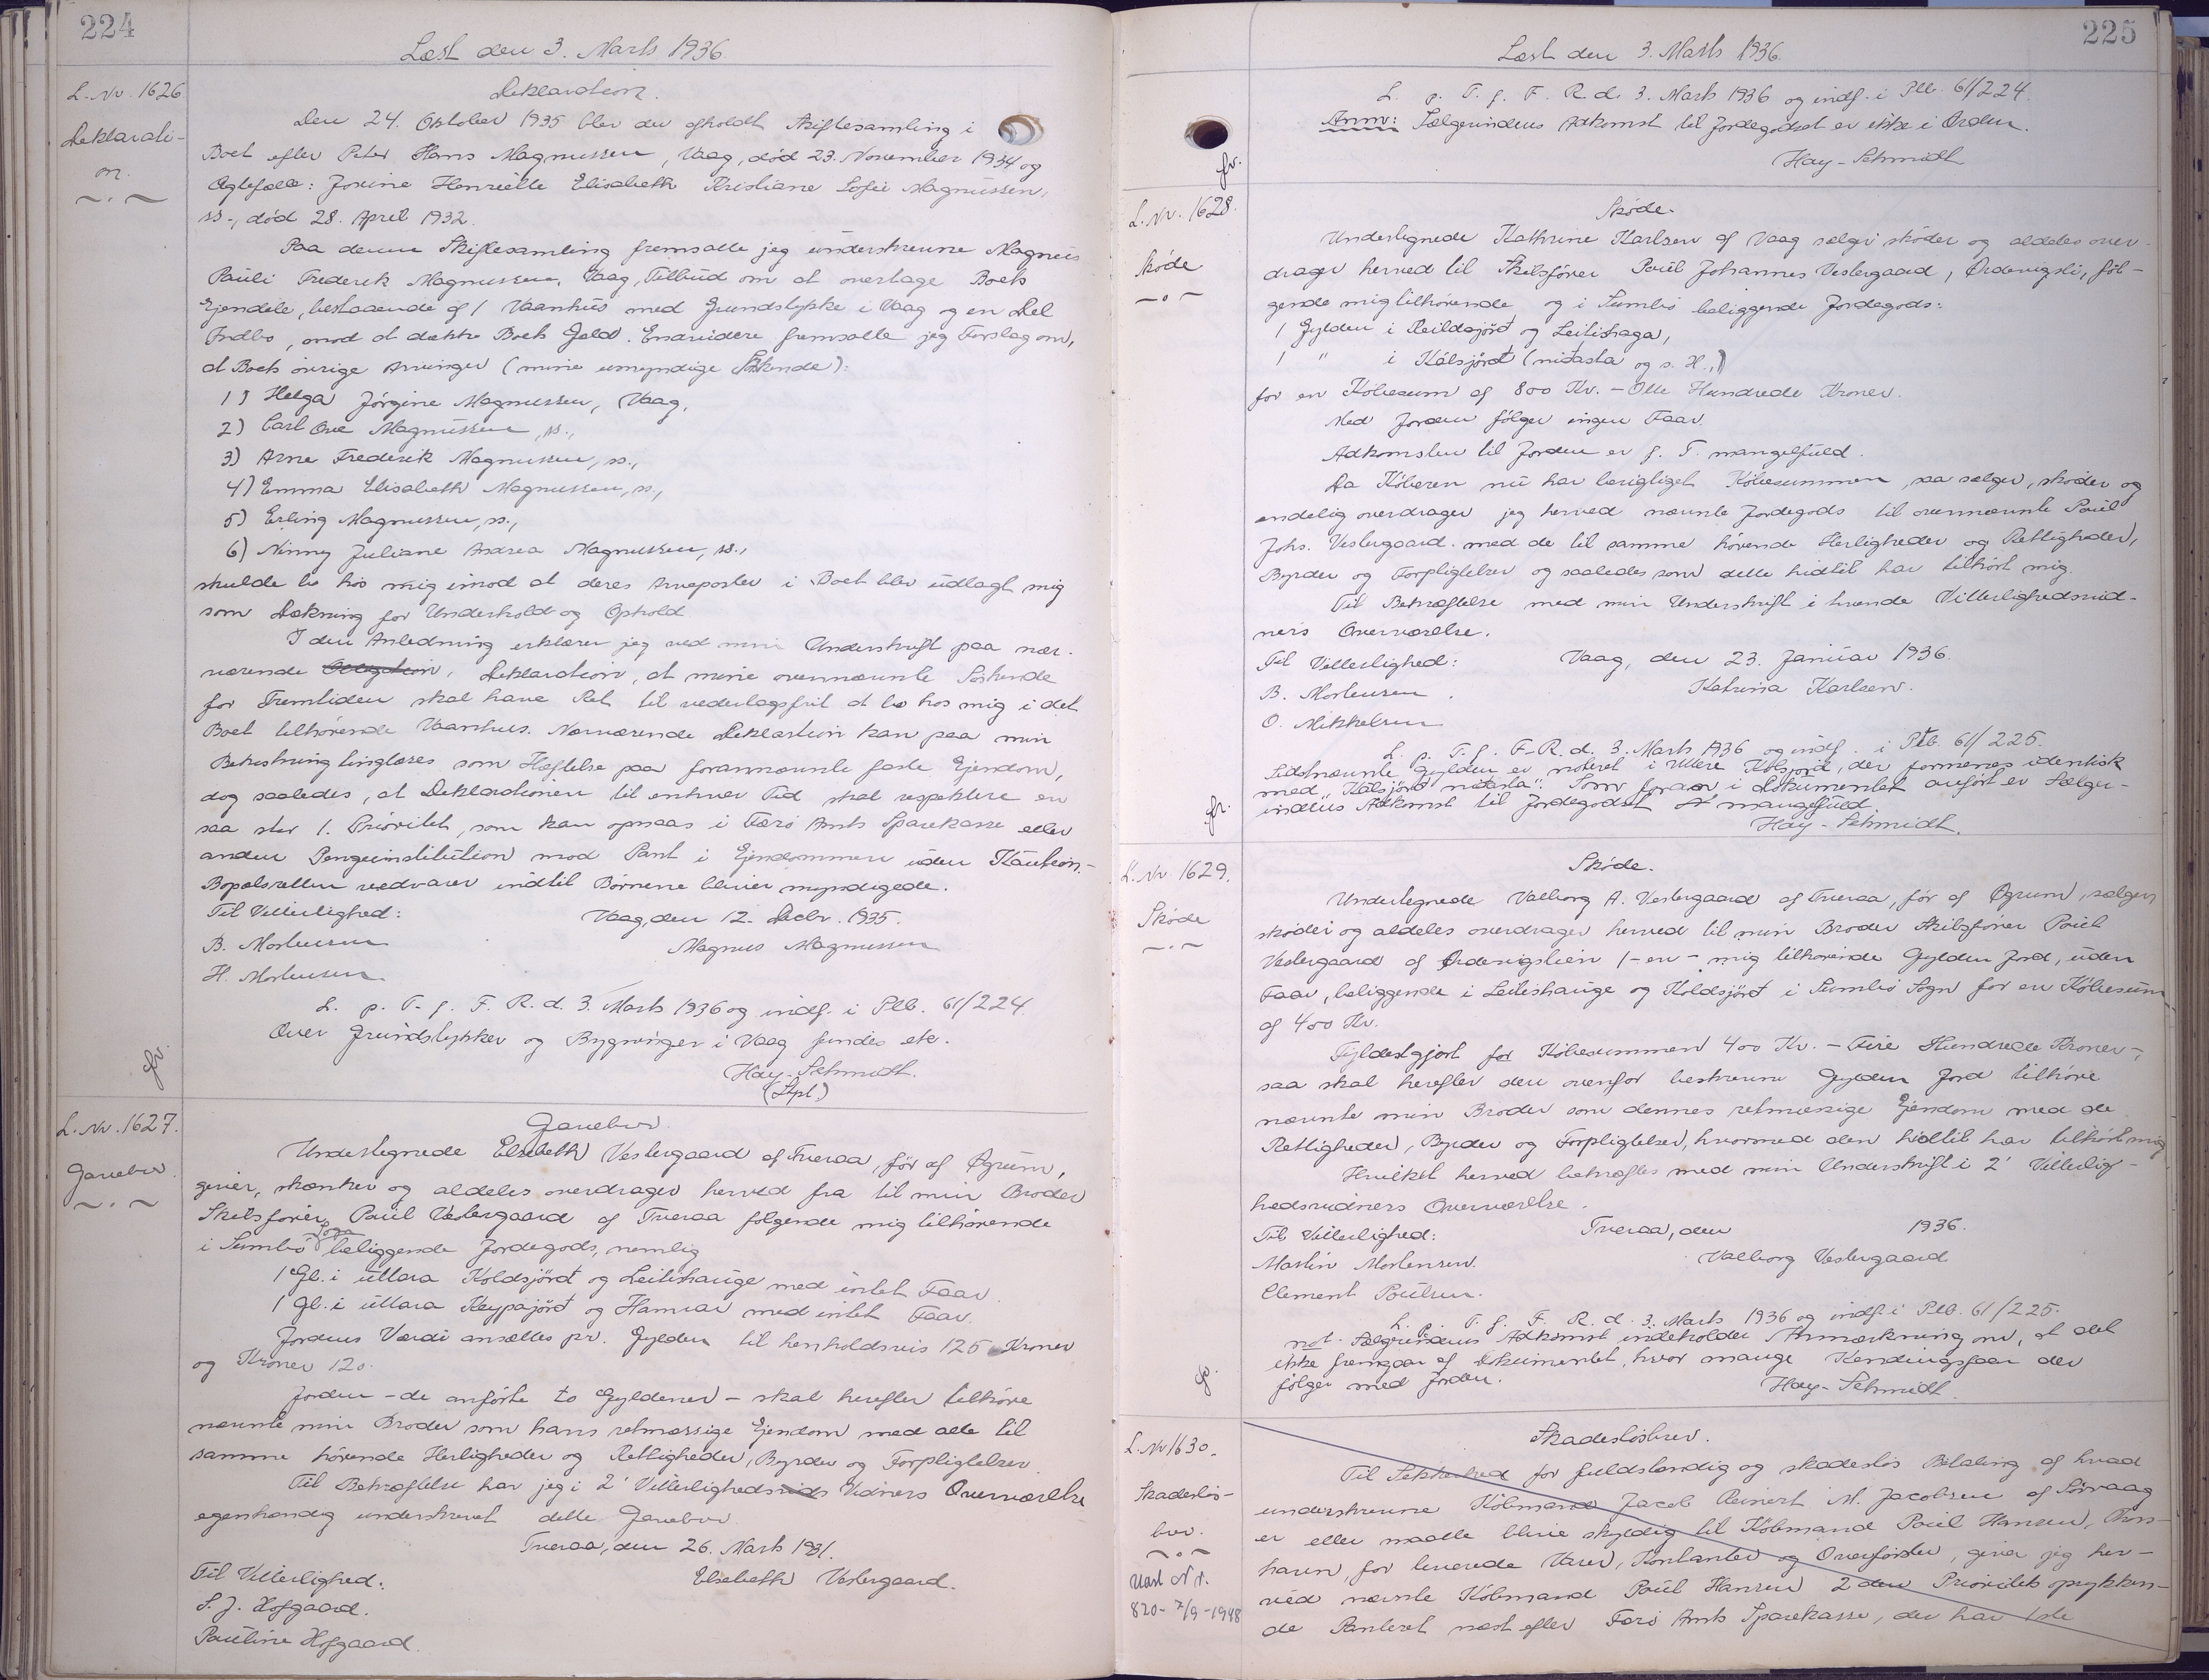 224
Læst den 3. Marts 1936.
L. Nr. 1626
Deklarati-
on.
Deklaration.
Den 24. Oktober 1935 blev der afholdt Skiftesamling i
Boet efter Peter Hans Magnussen, Vaag, død 23. November 1934 og
Ægtefælle: Jorine Henriette Elisabeth Kristiane Sofie Magnussen,
ss., død 28. April 1932.
Paa denne Skiftesamling fremsatte jeg underskrevne Magnus
Pauli Frederik Magnussen, Vaag, Tilbud om at overtage Boets
Ejendele, bestaaende af 1 Vaanhus med Grundstykke i Vaag og en Del
Indbo, mod at dække Boets Gæld. Endvidere fremsatte jeg Forslag om,
at Boets øvrige Arvinger (mine umyndige Søskende):
1) Helga Jørgine Magnussen, Vaag,
2) Carl Ove Magnussen, ss.,
3) Arne Frederik Magnussen, ss.,
4) Emma Elisabeth Magnussen, ss.,
5) Erling Magnussen, ss.,
6) Ninny Juliane Andrea Magnussen, ss.,
skulde bo hos mig imod at deres Arveparter i Boet blev udlagt mig
som Dækning for Underhold og Ophold
I den Anledning erklærer jeg ved min Underskrift paa nær-
værende Obligation, Deklaration, at mine ovennævnte Søskende
for Fremtiden skal have Ret til vederlagsfrit at bo hos mig i det
Boet tilhørende Vaanhus. Nærværende Deklartion kan paa min
Bekostning tinglæses som Hæftelse paa forannævnte faste Ejendom,
dog saaledes, at Deklarationen til enhver Tid skal respektere en
saa stor 1. Prioritet, som kan opnaas i Færø Amts Sparekasse eller
anden Pengeinstitution mod Pant i Ejendommen uden Kaution.-
Bopælsretten vedvarer indtil Børnene bliver myndigede.
Til Vitterlighed:
Vaag, den 12. Decbr. 1935.
B. Mortensen
Magnus Magnussen
H. Mortensen
L. p. T. f. F. R. d. 3. Marts 1936 og indf. i Plb. 61/224.
Over Grundstykker og Bygninger i Vaag fundes etc.
fr.
Hay-Schmidt.
(Stpl.)
L. Nr. 1627.
Gavebrev.
Gavebrev.
Undertegnede Elsebeth Vestergaard af Tveraa, før af Øgrum,
giver, skænker og aldeles overdrager herved fra til min Broder
Skibsfører Poul Vestergaard af Tveraa følgende mig tilhørende
i Sumbø Sogn beliggende Jordegods, nemlig
1 Gl. i uttara Koldsjørđ og Leitishauge med intet Faar.
1 Gl. i uttara Keypajørđ og Hamrar med intet Faar.
Jordens Værdi ansættes pr. Gylden til henholdsvis 125 Kroner
og Kroner 120.
Jorden - de anførte to Gyldener - skal herefter tilhøre
nævnte min Broder som hans retmæssige Ejendom med alle til
samme hørende Herligheder og Rettigheder, Byrder og Forpligtelser.
Til Bekræftelse har jeg i 2' Vitterlighedsvids Vidners Overværelse
egenhændig underskrevet dette Gavebrev.
Tveraa, den 26. Marts 1931.
Til Vitterlighed:
Elsebeth Vestergaard.
S. J. Hofgaard.
Pauline Hofgaard.
225
Læst den 3. Marts 1936.
L. p. T. f. F. R. d. 3. Marts 1936 og indf. i Plb. 61/224.
Anm: Sælgerindens Adkomst til Jordegodset er ikke i Orden.
fr.
Hay-Schmidt
L. Nr. 1628.
Skøde
Skøde.
Undertegnede Kathrine Karlsen af Vaag sælger skøder og aldeles over-
drager herved til Skibsfører Poul Johannes Vestergaard, Ørdevigsli, føl-
gende mig tilhørende og i Sumbø beliggende Jordegods:
1 Gylden i Reildsjørđ og Leitishaga,
1 " i Kálsjørđ (niđasta og s. H.,)
for en Købesum af 800 Kr. - Otte Hundrede Kroner.
Med Jorden følger ingen Faar.
Adkomsten til Jorden er f. T. mangelfuld.
Da Køberen nu har berigtiget Købesummen, saa sælger, skøder og
endelig overdrager jeg herved nævnte Jordegods til ovennævnte Poul
Johs. Vestergaard. med de til samme hørende Herligheder og Rettigheder,
Byrder og Forpligtelser og saaledes som dette hidtil har tilhørt mig.
Til Bekræftelse med min Underskrift i tvende Vitterlighedsvid-
ners Overværelse.
Til Vitterlighed:
Vaag, den 23. Januar 1936.
B. Mortensen.
Katrina Karlsen.
O. Mikkelsen
L. p. T. f. F. R. d. 3. Marts 1936 og indf. i Ptb. 61/225.
Sidstnævnte Gylden er noteret i Uttere Kolsjord, der formenes identisk
med "Kálsjørđ niđasta". Som foran i Dokumentet anført er Sælger-
indens Adkomst til Jordegodset mangelfuld.
fr.
Hay-Schmidt.
L. Nr. 1629.
Skøde
Skøde.
Undertegnede Valborg A. Vestergaard af Tveraa, før af Øgrum, sælger,
skøder og aldeles overdrager herved til min Broder Skibsfører Poul
Vestergaard af Ørdevigslien 1-en- mig tilhørende Gylden Jord, uden
Faar, beliggende i Leitishauge og Koldsjørđ i Sumbø Sogn for en Købesum
af 400 Kr.
Fyldestgjort for Købesummen 400 Kr. - Fire Hundrede Kroner -,
saa skal herefter den ovenfor beskrevne Gylden Jord tilhøre
nævnte min Broder som dennes retmæssige Ejendom med de
Rettigheder, Byrder og Forpligtelser, hvormed den hidtil har tilhørt mig
Hvilket herved bekræftes med min Underskrift i 2' Vitterlig-
hedsvidners Overværelse.
Til Vitterlighed:
Tveraa, den 1936.
Martin Mortensen.
Valborg Vestergaard
Clement Poulsen.
L. p. T. f. F. R. d. 3. Marts 1936 og indf. i Plb. 61/225.
not. Sælgerindens Adkomst indeholder Anmærkning om, at det
ikke fremgaar af Dokumentet, hvor mange Kendingsfaar der
følger med Jorden.
fr.
Hay-Schmidt.
L. Nr 1630.
Skadesløs-
brev.
Uasl Nr.
820-7/9-1948
Skadesløsbrev.
Til Sikkerhed for fuldstændig og skadesløs Betaling af hvad
underskrevne Købmand Jacob Reinert M. Jacobsen af Sørvaag
er eller maatte blive skyldig til Købmand Poul Hansen, Thors-
havn, for leverede Varer, Kontanter og Overførsler, giver jeg her-
ved nævnte Købmand Poul Hansen 2den Prioritets oprykken-
de Panteret næst efter Færø Amts Sparekasse, der har 1ste